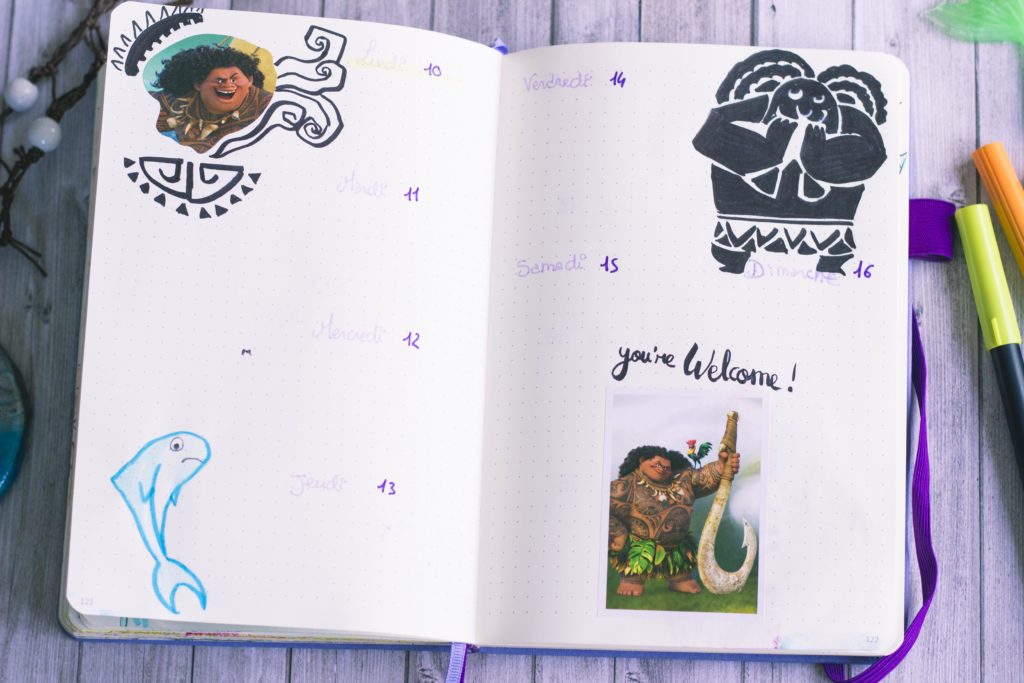 Lundi 10
Mardi 11
Mercredi 12
Jeudi 13
121
Vendredi 14
Samedi 15
Dimanche 16
you're Welcome!
122